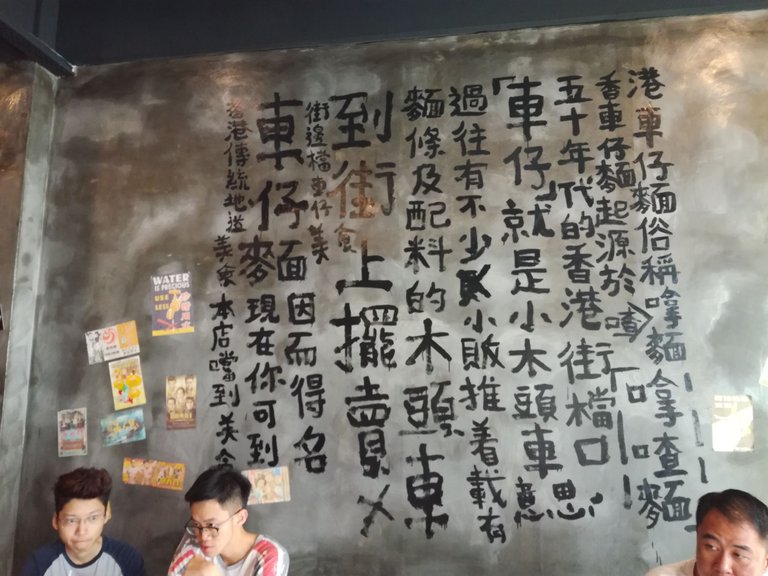 港車仔麵俗稱嗱麵拿查麵
香車仔麵起源於喳
五十年代的香港街檔口
「車仔」就是小木頭車意思
過往有不少小販推着載有
麵條及配料的木頭車
到街上擺賣
街邊檔車仔美食
車仔麵因而得名
麥現在你可到
香港傳統地道美食本店噹到美食
WATER
IS PRECIOUS
USE
LESS